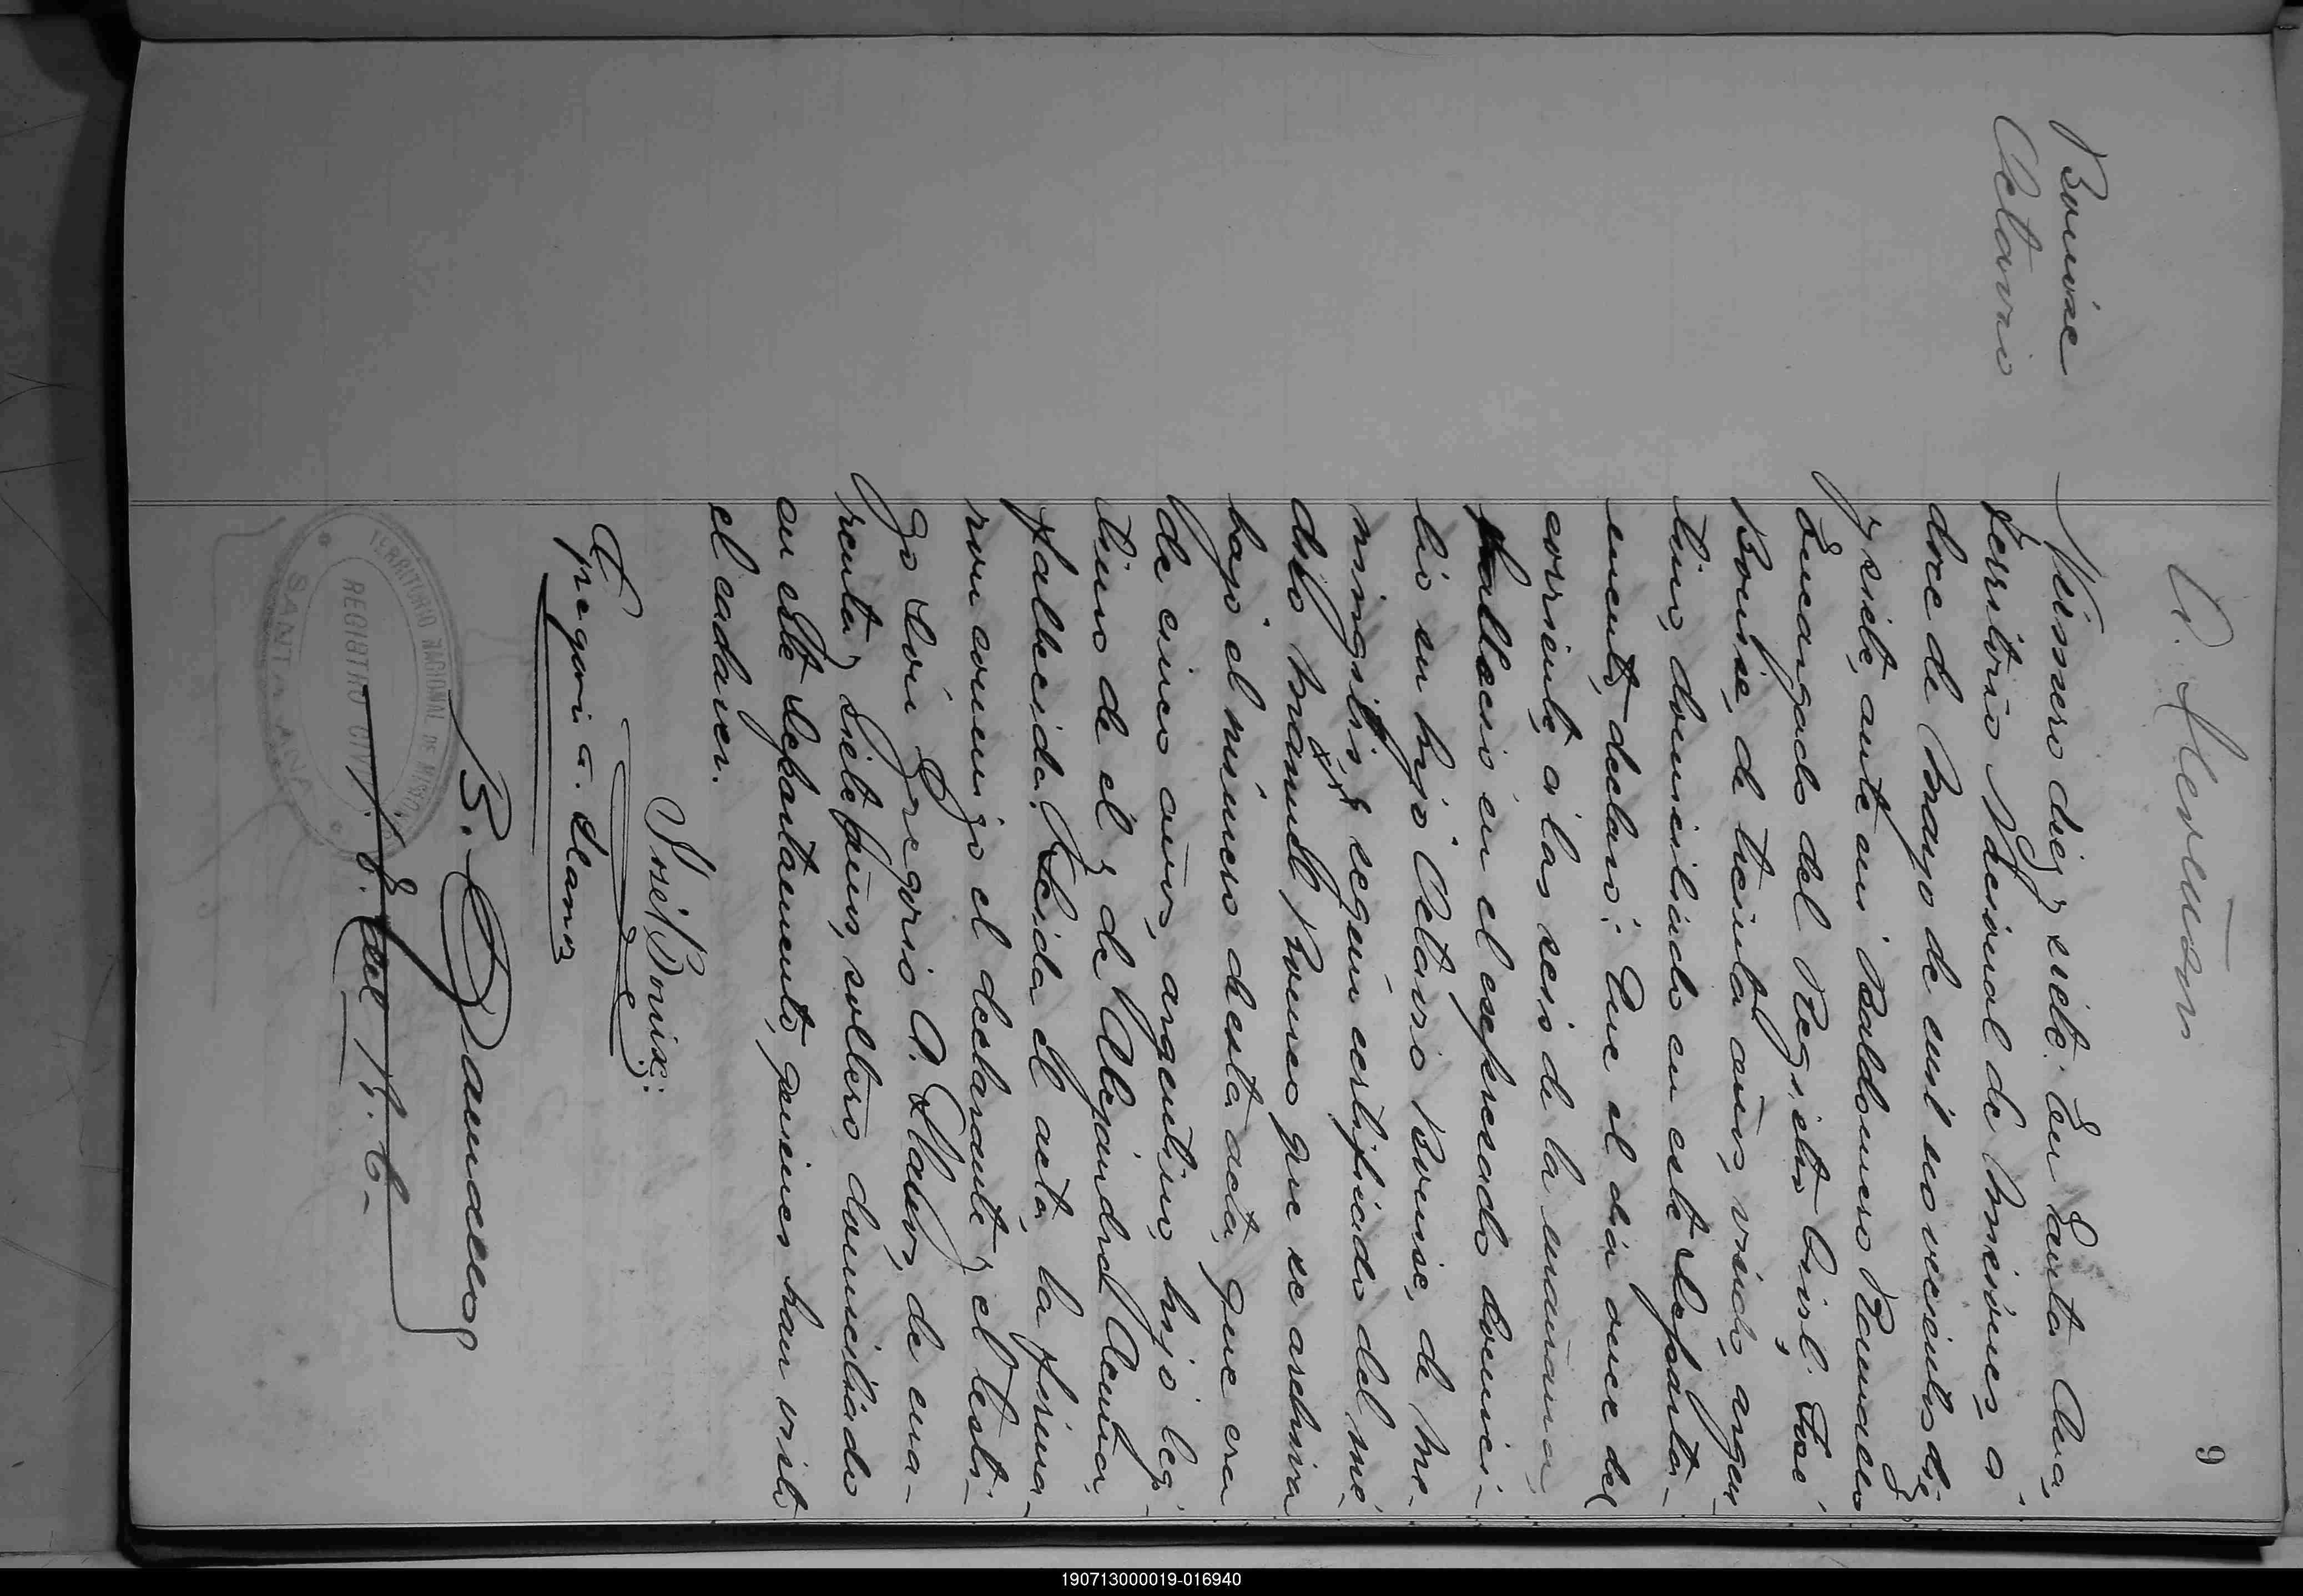 9
Bounise
Octavio
Número diez y siete. En Santa Ana,
Territorio Nacional de Misiones, a
doce de Mayo de mil novecientos diez
y siete, ante mi Baldomero Ramallo
Encargado del Registro Civil, José
Bounise, de treinta años, viudo, argen-
tino, domiciliado en este Departa-
mento, declaró: Que el día once del
corriente, a las seis de la mañana,
falleció en el expresado domici-
lio su hijo Octavio Bounise, de me-
ningitis, según certificado del mé-
dico Manuel que se archiva
bajo el número de esta acta, que era
de cinco años, argentino, hijo legí-
timo de él y de Alejandra Acuña,
fallecida. Leida el acta, la firma-
ron conmigo el declarante y el testi-
go Don Gregorio A. Llanos, de cua-
renta y siete años, soltero, domiciliado
en este Departamento, quienes han visto
el cadáver.
José Bounise:
Gregorio A. Llanos
B. Ramallos
J. E. del R. C.
TERRITORIO NACIONAL DE MISIONES
REGISTRO CIVIL
SANTA ANA
190713000019-016940